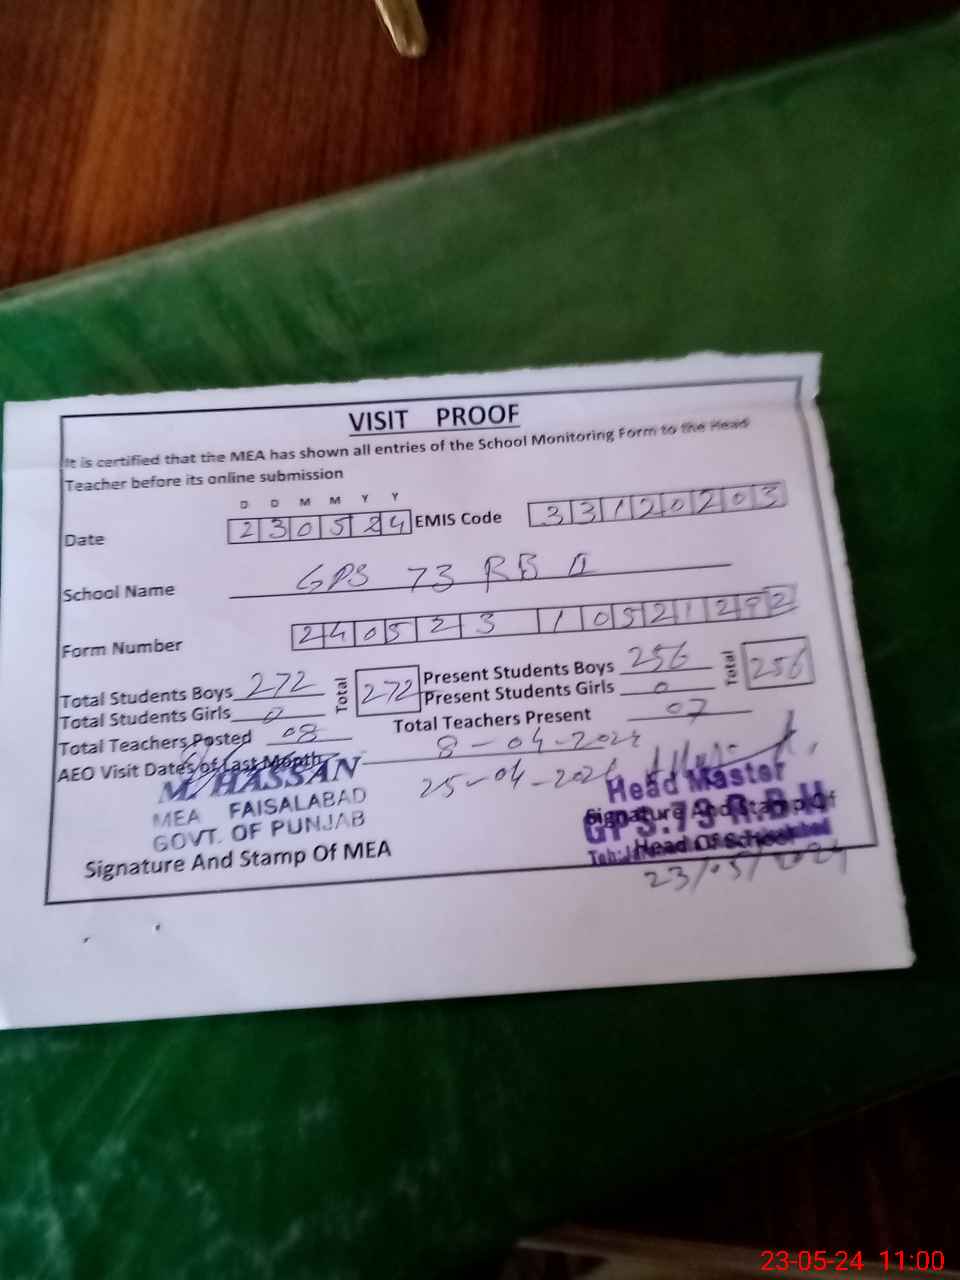 VISIT PROOF
It is certified that the MEA has shown all entries of the School Monitoring Form to the Head
Teacher before its online submission
D D M M Y Y
Date 230524 EMIS Code 33120203
School Name GPS 73 RB II
Form Number 240523 10521292
Total Students Boys 272 Total 272 Present Students Boys 256 Total 256
Total Students Girls 0 Present Students Girls 0
Total Teachers Posted 08 Total Teachers Present 07
AEO Visit Dates of Last Month 8-04-2024
25-04-2024
M. HASSAN
MEA FAISALABAD
GOVT. OF PUNJAB
Signature And Stamp Of MEA
Head Master
Signature And Stamp Of
GPS.73 R.B
Head Of School
23/05/2024
23-05-24 11:00